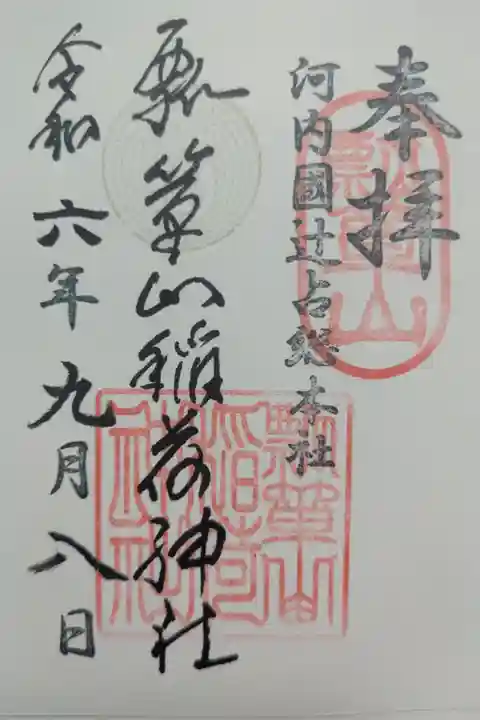 奉拝
河内國辻占総本社
瓢簞山稲荷神社
令和六年九月八日
瓢簞山
瓢簞山稲荷神社